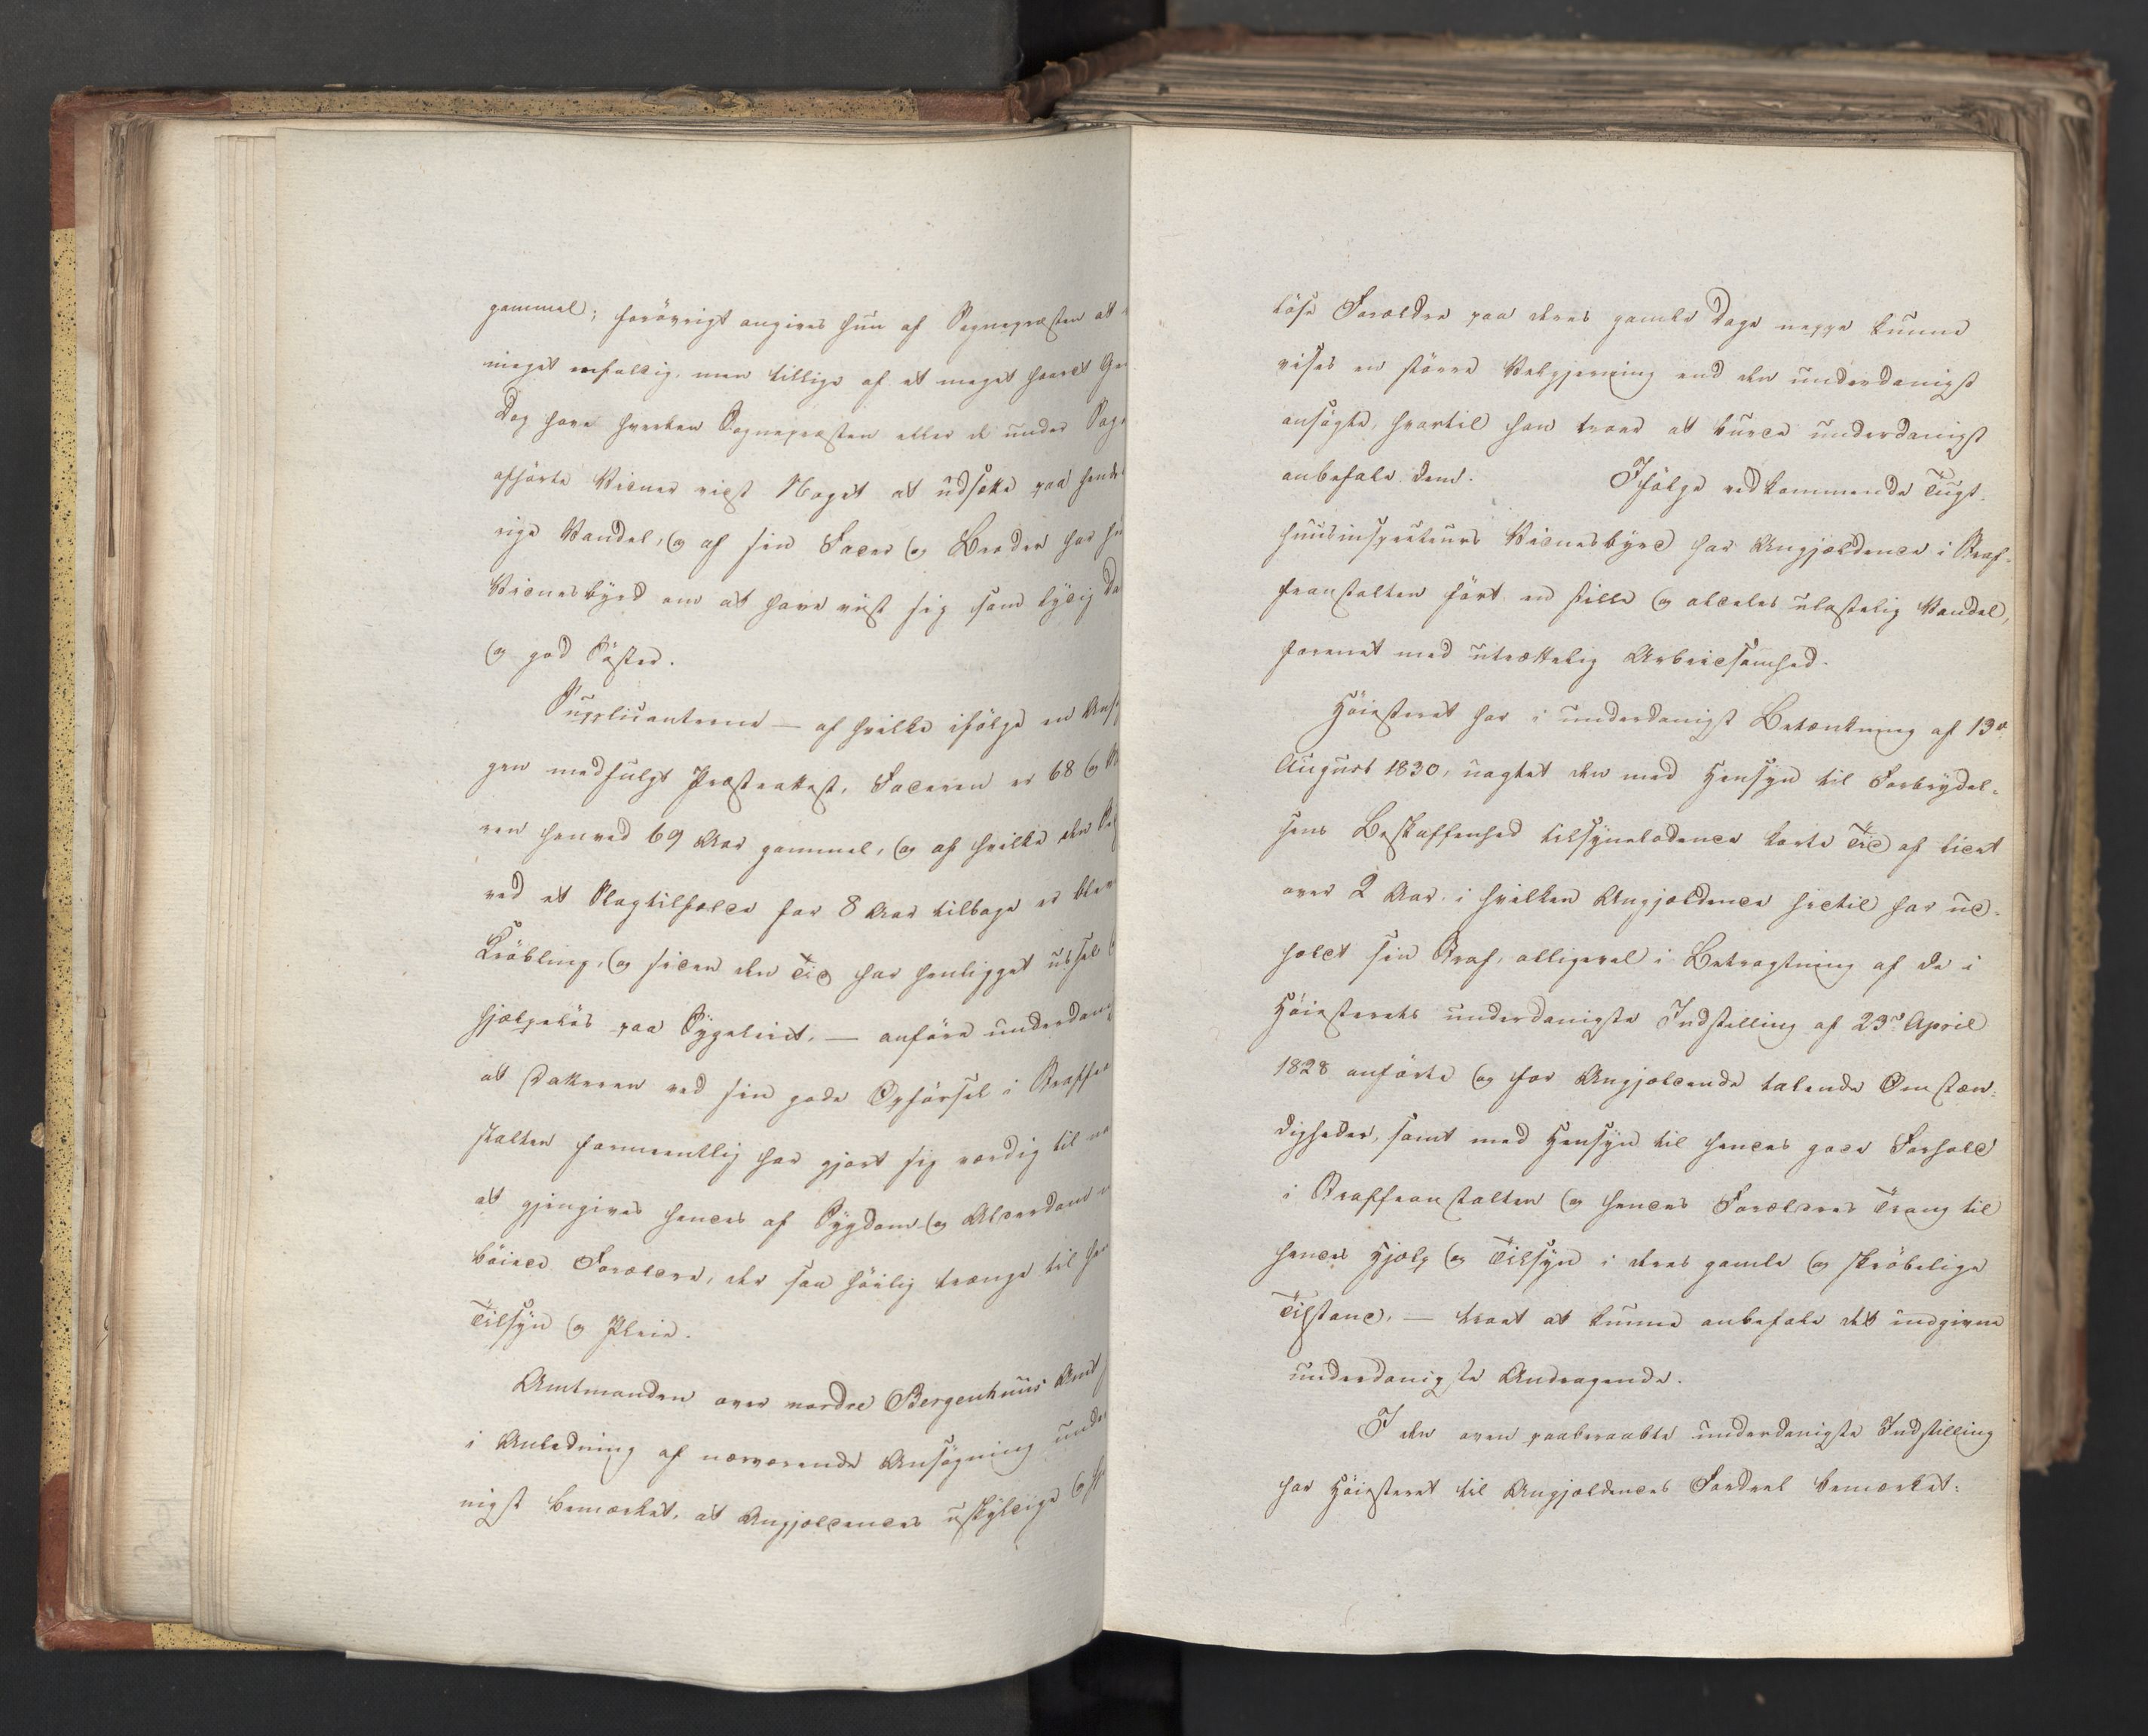 gammel; forövrigt angives hun af Sognepræsten at
meget enfoldig, men tillige af et meget haardt
Dog have hverken Sognepræsten eller de under
afhörte Vidner vidst Noget at udsætte paa hendes
rige Vandel, og af sin Fader og Broder har hun
Vidnesbyrd om at have viist sig som lydig
og god Söster.
Supplicanterne — af hvilke ifölge en
gen medfulgt Præsteattest, Faderen er 68 og
ren henved 69 Aar gammel, og af hvilke den
ved et Slagtilfælde for 8 Aar tilbage er bleven
Kröbling, og siden den Tid har henligget ussel
hjælpelös paa Sygeleiet, — anföre underdan
at Datteren ved sin gode Opförsel i Straffe
stalten formeentlig har gjort sig værdig til
at gjengives hendes af Sygdom og Alderdom
böiede Forældre, der saa höilig trænge til hendes
Tilsyn og Pleie.
Amtmanden over nordre Bergenhuus Amt
i Anledning af nærværende Ansögning under
nigst bemærket, at Angjældendes uskyldige og
löse Forældre paa deres gamle Dage neppe kunne
vises en större Velgjerning end den underdanigst
ansögte, hvortil han troer at burde underdanigst
anbefale dem. Ifölge vedkommende Tugt-
huusinspecteurs Vidnesbyrd har Angjældende i Straf-
feanstalten fört en stille og aldeles ulastelig Vandel,
forenet med utrættelig Arbeidsomhed.
Höiesteret har i underdanigst Betænkning af 13de
August 1830, uagtet den med Hensyn til Forbrydel-
sens Beskaffenhed tilsyneladende korte Tid af lidet
over 2 Aar, i hvilken Angjældende hidtil har ud-
holdt sin Straf, alligevel i Betragtning af de i
Höiesterets underdanigste Indstilling af 23de April
1828 anförte og for Angjældende talende Omstæn-
digheder, samt med Hensyn til hendes gode Forhold
i Straffeanstalten og hendes Forældres Trang til
hendes Hjælp og Tilsyn i deres gamle og skröbelige
Tilstand, — troet at kunne anbefale det indgivne
underdanigste Andragende.
I den oven paaberaabte underdanigste Indstilling
har Höiesteret til Angjældendes Fordeel bemærket: